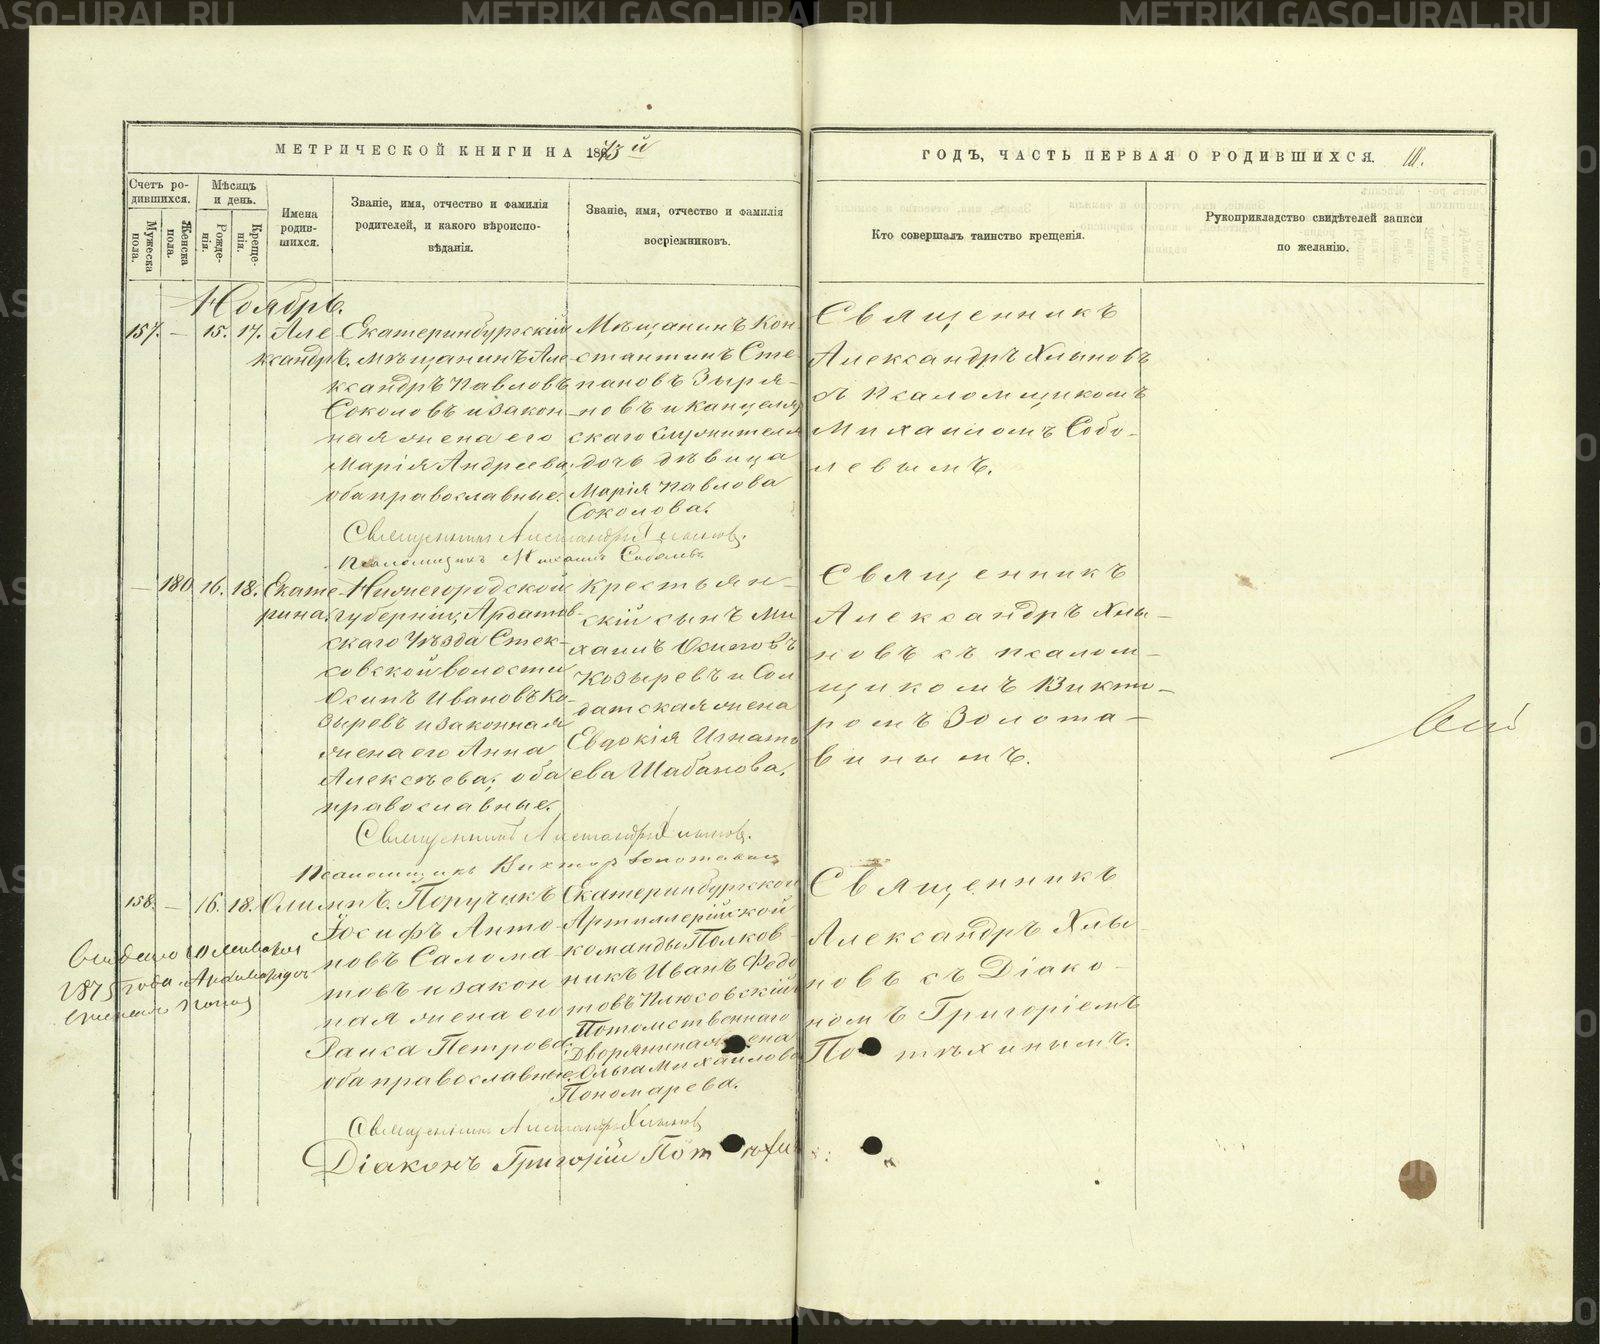 МЕТРИЧЕСКОЙ КНИГИ НА 1873й
ГОДЪ, ЧАСТЬ ПЕРВАЯ О РОДИВШИХСЯ.
Счетъ родившихся.
Мужеска пола.
Женска пола.
Мѣсяцъ и день.
Рожденія.
Крещенія.
Имена родившихся.
Званіе, имя, отчество и фамилія
родителей, и какого вѣроиспо-
вѣданія.
Званіе, имя, отчество и фамилія
воспріемниковъ.
Кто совершалъ таинство крещенія.
Рукоприкладство свидѣтелей записи
по желанію.
Ноябрь.
157. — 15. 17. Але
ксандръ.
Екатеринбургскій
мѣщанинъ Але-
ксандръ Павловъ
Соколовъ и закон-
ная жена его
Марія Андреева,
оба православные.
Мѣщанинъ Кон-
стантинъ Сте-
пановъ Зыря-
новъ и канцеляр
скаго служителя
дочь дѣвица
Марія Павлова
Соколова.
Священникъ
Александръ Хлыновъ
съ псаломщикомъ
Михаиломъ Собо-
левымъ.
Священникъ Александръ Хлыновъ.
Псаломщикъ Михаилъ Соболевъ
— 180 16. 18. Екате-
рина.
Нижегородской
губерніи, Ардатов-
скаго Уѣзда Стек-
совской волости
Осипъ Ивановъ Ко-
зыревъ и законная
жена его Анна
Алексѣева, оба
православные.
Крестьян-
скій сынъ Ми
хаилъ Осиповъ
Козыревъ и Сол
датская жена
Евдокія Игнать
ева Шабанова.
Священникъ
Александръ Хлы-
новъ съ псалом-
щикомъ Викто-
ромъ Золота-
винымъ.
Священникъ Александръ Хлыновъ.
Псаломщикъ Викторъ Золотавинъ
158. — 16. 18. Олимпъ.
Поручикъ
Іосифъ Анто-
новъ Салома-
товъ и закон
ная жена его
Раиса Петрова,
оба православные.
Екатеринбургской
Артиллерійской
команды Полков-
никъ Иванъ Федо
товъ Плюсовскій и
Потомственнаго
Дворянина жена
Ольга Михайлова
Пономарева.
Священникъ
Александръ Хлы
новъ съ Діако-
номъ Григоріемъ
Потѣхинымъ.
Священникъ Александръ Хлыновъ
Діаконъ Григорій Потѣхинъ
1875 года
METRIKI.GASO-URAL.RU